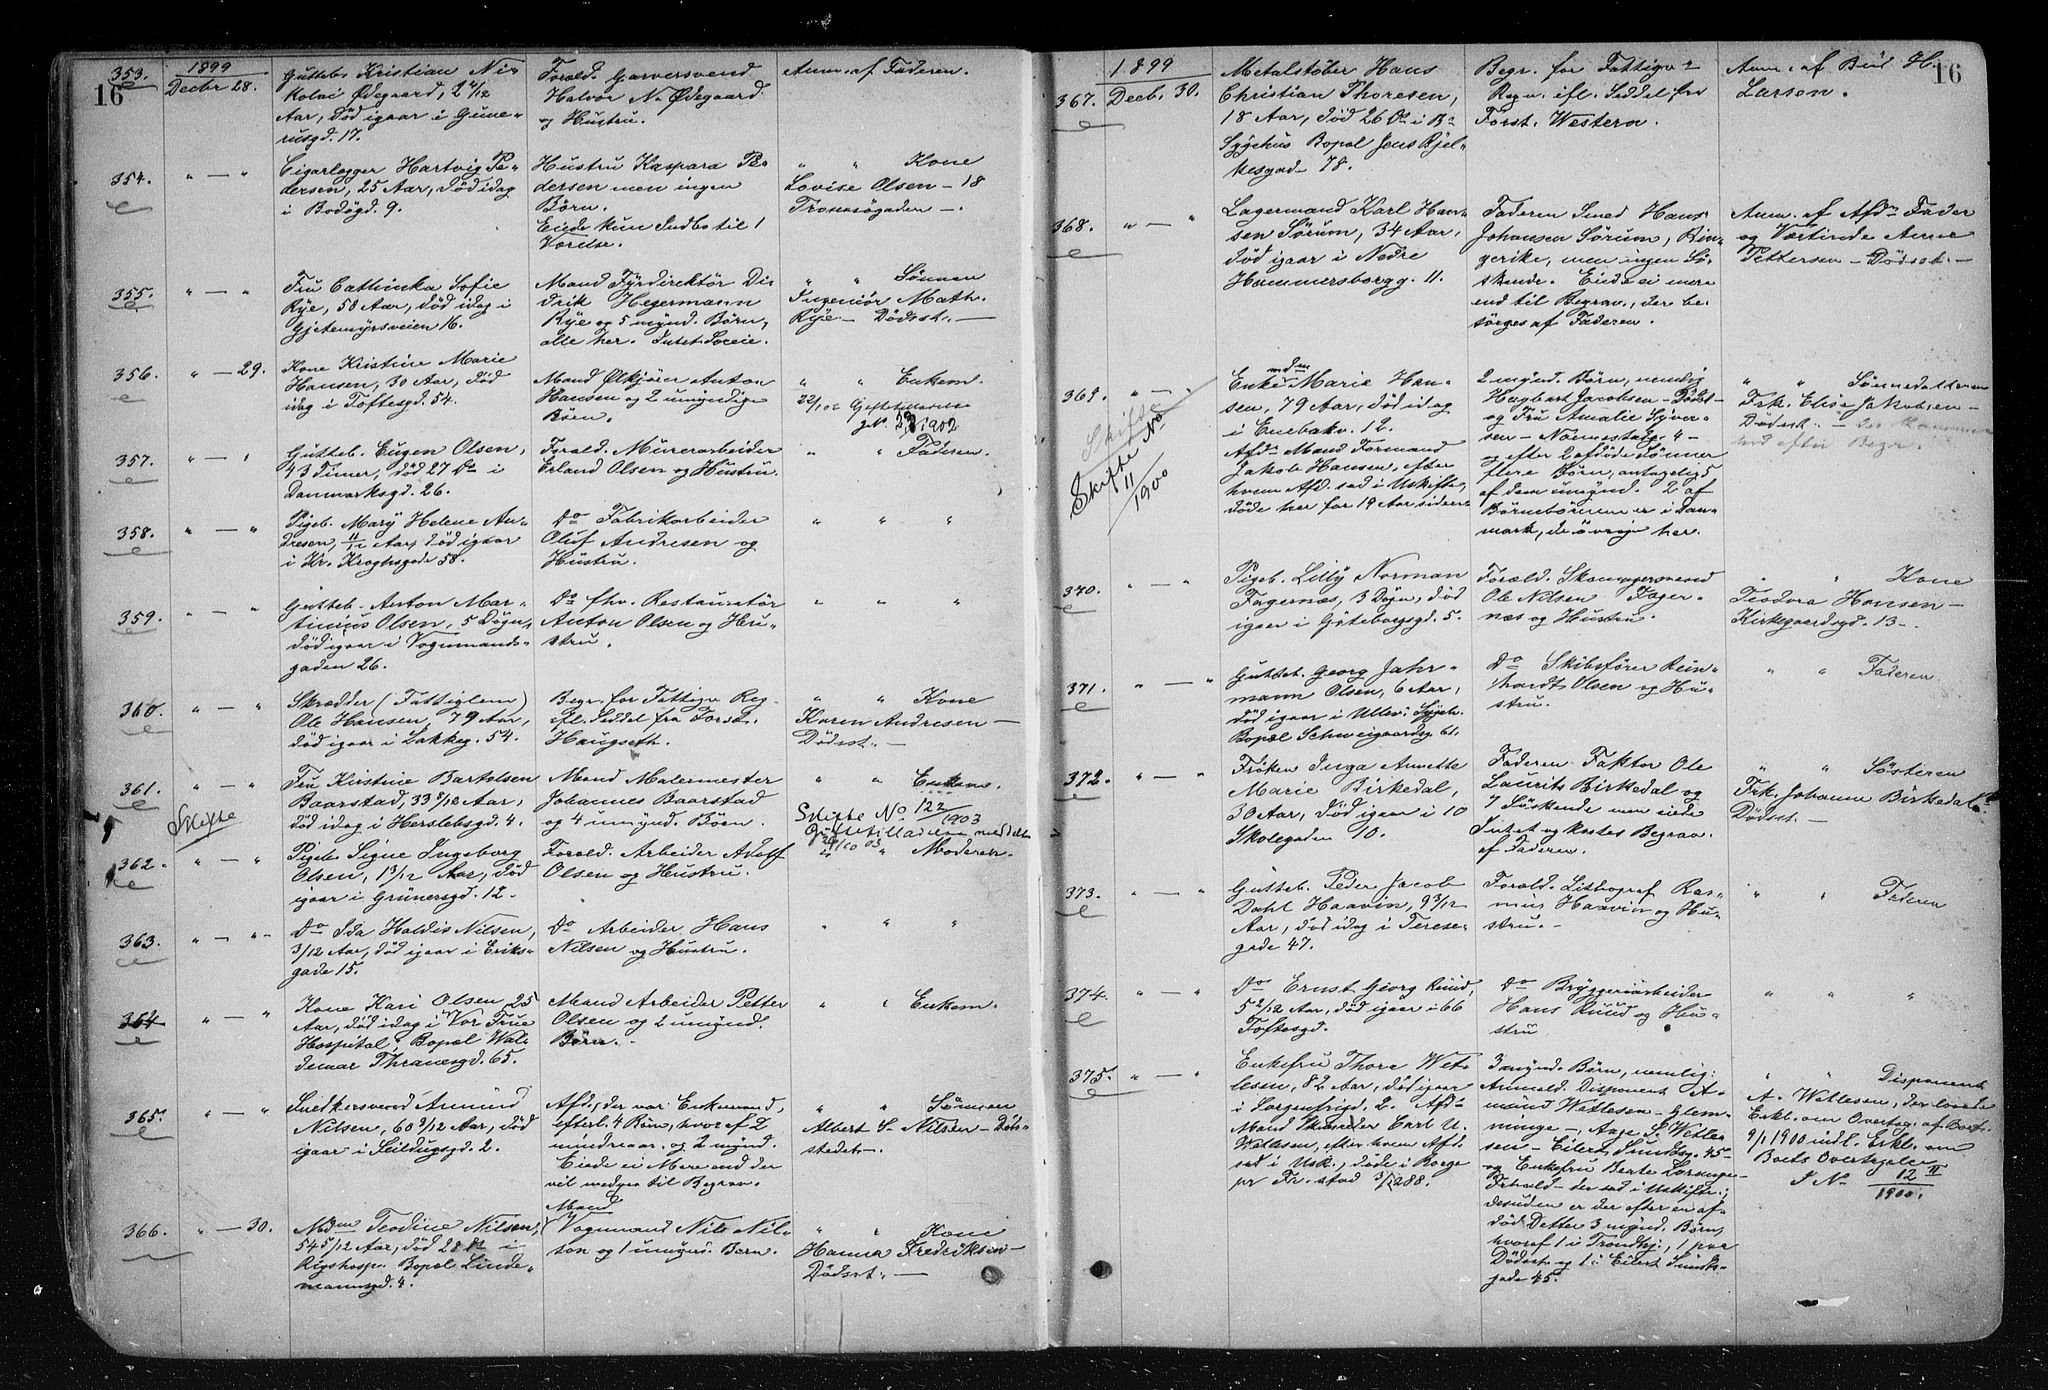 16
353.
1899
Decbr 28.
Gutteb. Kristian Ni-
kolai Ødegaard, 2 4/12
Aar, död igaar i Gune-
riusgd. 17.
Foræld. Garversvend
Halvor N. Ødegaard
og Hustru.
Anm. af Faderen.
354.
" — "
Cigarlægger Hartvig Pe-
dersen, 25 Aar, död idag
i Bodögd. 9.
Hustru Kaspara Pe-
dersen men ingen
Börn.
Eiede kun Indbo til 1
Værelse.
" " Kone
Lovise Olsen — 18
Tromsögaden —.
355.
" — "
Fru Cattinka Sofie
Rÿe, 58 Aar, död idag i
Gjetemyrsveien 16.
Mand Fyrdirektör Di-
drik Hegermann
Rÿe og 5 mynd. Börn,
alle her. Intet Særeie.
" " Sönnen
Ingeniör Math.
Rÿe — Dödsst. —
356.
" — 29.
Kone Kristine Marie
Hansen, 30 Aar, död
idag i Toftesgd. 54.
Mand Ølkjörer Anton
Hansen og 2 umyndige
Börn.
" " Enkem.
22/1 02 Gifttilladelse
1902
357.
" — "
Gutteb. Eugen Olsen,
43 Timer, död 27 Ds i
Danmarksgd. 26.
Foræld. Murerarbeider
Erland Olsen og Hustru.
" " Faderen.
358.
" — "
Pigeb. Marÿ Helene An-
dresen, 11/12 Aar, död igaar
i Kr. Kroghsgade 58.
Do Fabrikarbeider
Oluf Andresen og
Hustru.
" " "
359.
" — "
Gutteb. Anton Mar-
tinius Olsen, 5 Dögn,
död igaar i Vognmands-
gaden 26.
Do fhv. Restauratör
Anton Olsen og Hu-
stru.
" " "
360.
" — "
Skrædder (Fattiglem)
Ole Hansen, 79 Aar,
död igaar i Lakkeg. 54.
Begr. for Fattigv. Reg.
ifl. Seddel fra Forst.
Haugseth.
" " Kone
Karen Andresen —
Dödsst. —
361.
" — "
Skifte
Fru Kristine Bartolsen
Baarstad, 33 8/12 Aar,
död idag i Herslebsgd. 4.
Mand Malermester
Johannes Baarstad
og 4 umynd. Börn.
" " Enkem.
Skifte No. 122/1903
Gifttilladelse meddelt
/10 03
362.
" — "
Pigeb. Signe Ingeborg
Olsen, 1 3/12 Aar, död
igaar i Grünersgd. 12.
Foræld. Arbeider Adolf
Olsen og Hustru.
" " Moderen.
363.
" — "
Do Ida Haldis Nilsen,
3/12 Aar, död igaar i Eriks-
gade 15.
Do Arbeider Hans
Nilsen og Hustru.
" " "
364
" — "
Kone Kari Olsen 25
Aar, död idag i Vor Frue
Hospital, Bopæl Wal-
demar Thranesgd. 65.
Mand Arbeider Petter
Olsen og 2 umynd.
Börn.
" " Enkem.
365.
" — "
Snedkersvend Amund
Nilsen, 60 9/12 Aar, död
igaar i Seildugsgd. 2.
Afd., der var Enkemand,
efterl. 4 Börn, hvoraf 2
mindreaar. og 2 mynd.
Eiede ei Mere end der
vil medgaa til Begrav.
" " Sönnen
Albert S. Nilsen — Död-
stedet —.
366.
" — 30.
Mdm Teodine Nilsen,
54 5/12 Aar, död 28 Ds i
Rigshosp. Bopæl Linde-
mannsgd. 4.
Mand
Vognmand Nils Nil-
sen og 1 umynd. Barn.
" " Kone
Hanna Fredriksen —
Dödsst. —
16
1899
367.
Decb. 30.
Metalstöber Hans
Christian Thoresen,
18 Aar, död 26 Ds i B.
Sygehus Bopæl Jens Bjel-
kesgad. 78.
Begr. for Fattigv.s
Regn. ifl. Seddel fra
Forst. Western.
Anm. af Bud H.
Larsen.
368.
" — "
Lagermand Karl Han-
sen Sörum, 34 Aar,
död igaar i Nedre
Hammersborgg. 11.
Faderen Smed Hans
Johansen Sörum, Rin-
gerike, men ingen Sö-
skende. Eiede ei mere
end til Begrav., der be-
sörges af Faderen.
Anm. af Afdes Fader
og Værtinde Anne
Pettersen — Dödsst. —
369.
" — "
Skifte
Skifte No
11/1900
Enkemdm Marie Han-
sen, 79 Aar, död idag
i Enebakv. 12.
Afds Mand Formand
Jakob Hansen, efter
hvem Afd. sad i Uskifte,
döde her for 19 Aar siden.
2 mynd. Börn, nemlig
Hagbart Jacobsen — Dödst —
og Fru Amalie Syver-
sen — Nannestadg. 4 —
og efter 2 afdöde Sönner
flere Börn, antagelig 5
af dem umynd. 2 af
Börnebörnene er i Dan-
mark, de övrige her.
" " Sönnedatteren
Frk. Elise Jakobsen —
Dödsst. —
ind efter Begr.
370.
" — "
Pigeb. Lilly Norman
Fagernæs, 3 Dögn, död
igaar i Göteborgsgd. 5.
Foræld. Skomagersvend
Ole Nilsen Fager-
næs og Hustru.
" " Kone
Teodora Hansen —
Kirkegaardsgd. 13 —
371.
" — "
Gutteb. Georg Jahr-
mann Olsen, 6 Aar,
död igaar i Ullev. Sygeh.
Bopæl Schweigaardsg. 61.
Do Skibsförer Rein-
hardt Olsen og Hu-
stru.
" " Faderen
372.
" — "
Fröken Inga Annette
Marie Birkedal,
30 Aar, död igaar i 10
Skolegaden 10.
Faderen Faktor Ole
Laurits Birkedal og
7 Söskende men eiede
Intet og kostes Begrav.
af Faderen.
" " Sösteren
Frk. Johanna Birkedal
Dödsst. —
373.
" — "
Gutteb. Peder Jacob
Dahl Haavin, 9 3/12
Aar, död idag i Terese-
gade 47.
Foræld. Lithograf Ras-
mus Haavin og Hu-
stru. —
" " Faderen
374.
" — "
Do Ernst Georg Ruud,
5 2/12 Aar, död igaar i 66
Toftesgd.
Do Bryggeriarbeider
Hans Ruud og Hu-
stru
" " "
375.
" — "
Enkefru Thora Wet-
lesen, 82 Aar, död igaar
i Sorgenfrigd. 2. Afds
Mand Skibsreder Carl U.
Wetlesen, efter hvem Afd.
sad i Usk., döde i Borge
pr Fr.stad 3/12 88.
3 mynd. Börn, nemlig:
Anmeld. Disponent A-
mund Wetlesen — Glem-
minge — Aage S. Wetle-
sen — Eilert Sundtsg. 45 —
og Enkefru Berte Lorange
Frhald — der sad i Uskifte;
desuden er der efter en af-
död Datter 3 mynd. Börn,
hvoraf 1 i Trondhj., 1 paa
Dödsst. og 1 i Eilert Sundts-
gade 45.
" " Disponent
A. Wetlesen, der lovede
Erkl. om Overtag. af Boet.
9/1 1900 indl. Erkl. om
Boets Overtagelse
J No 12 II/1900.